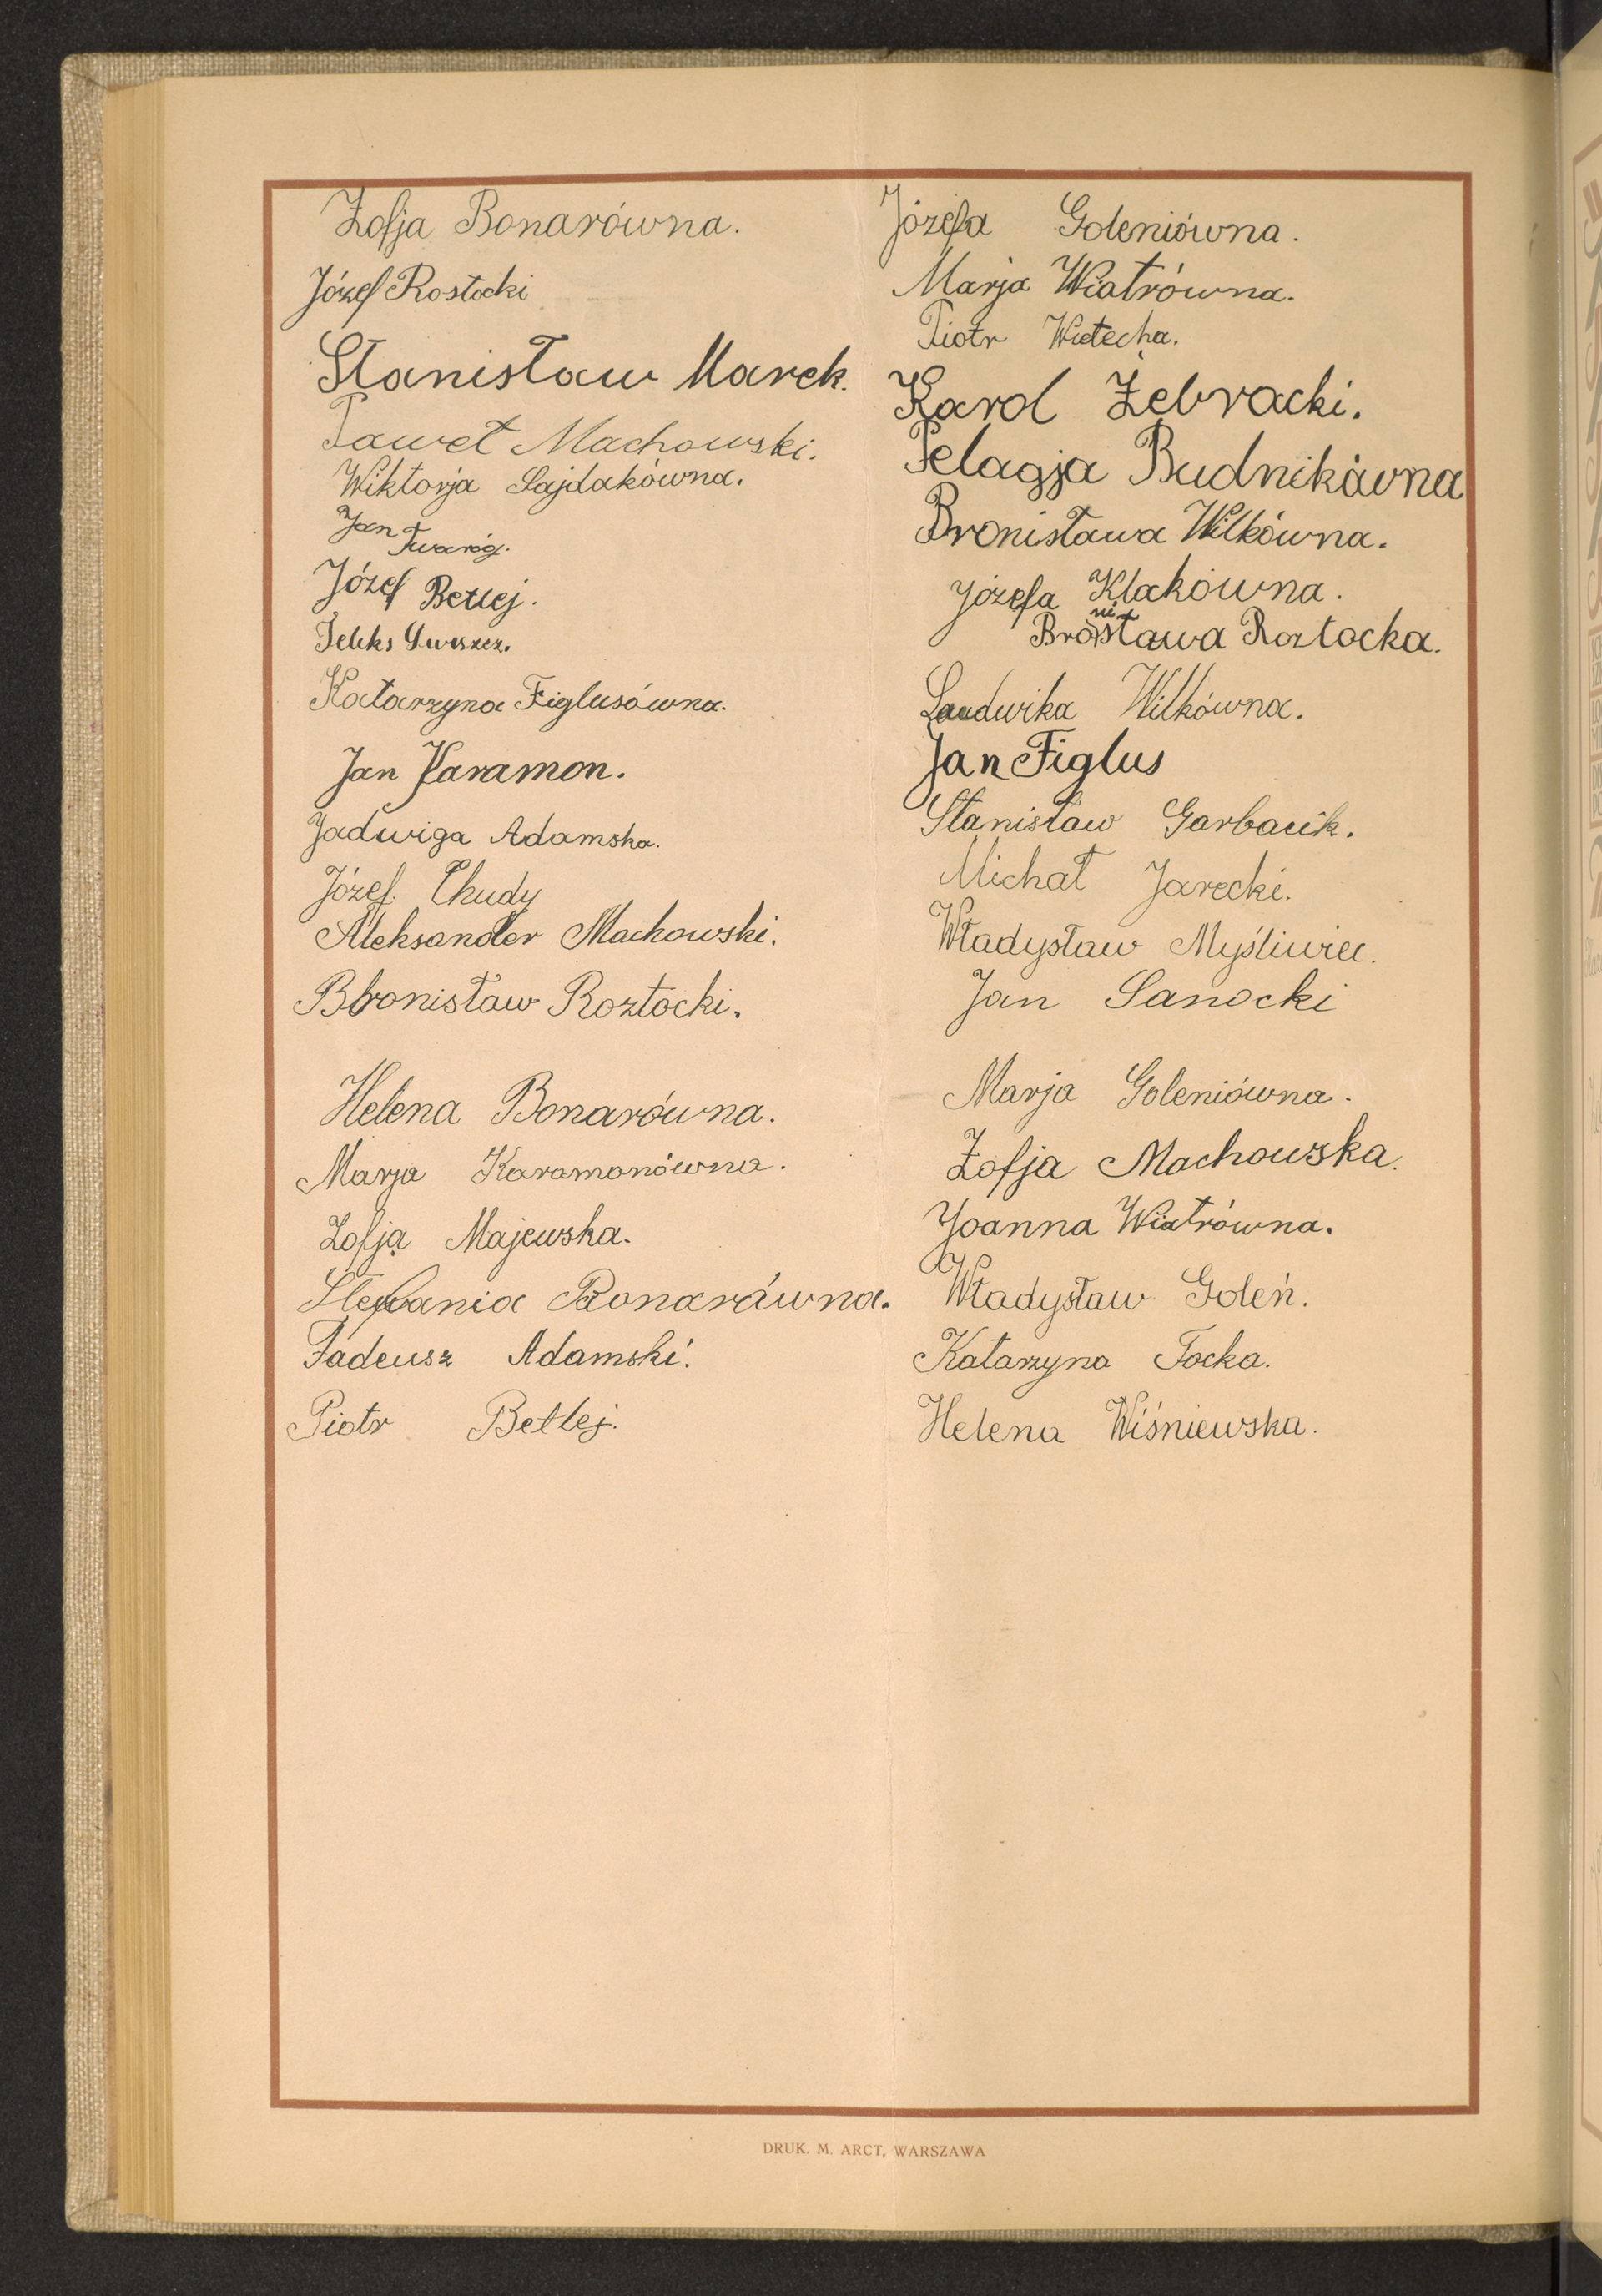 Zofja Bonarówna.
Józef Rostocki
Stanisław Marek.
Paweł Machowski.
Wiktorja Sajdakówna.
Jan Twaróg.
Józef Betlej.
Feliks
Katarzyna Figlusówna.
Jan Karamon.
Jadwiga Adamska.
Józef Chudy
Aleksander Machowski.
Bronisław Roztocki.
Helena Bonarówna.
Marja Karamonówna.
Zofja Majewska.
Stefania Bonarówna.
Tadeusz Adamski.
Piotr Betlej.
Józefa Goleniówna.
Marja Wiatrówna.
Piotr Wietecha.
Karol Żebracki.
Pelagja Budnikówna
Bronisława Wilkówna.
Józefa Klakówna.
Bronisława Roztocka.
Ludwika Wilkówna.
Jan Figlus
Stanisław Garbacik.
Michał Jarecki.
Władysław Myśliwiec.
Jan Sanocki
Marja Goleniówna.
Zofja Machowska.
Joanna Wiatrówna.
Władysław Goleń.
Katarzyna Focka.
Helena Wiśniewska.
DRUK. M. ARCT, WARSZAWA